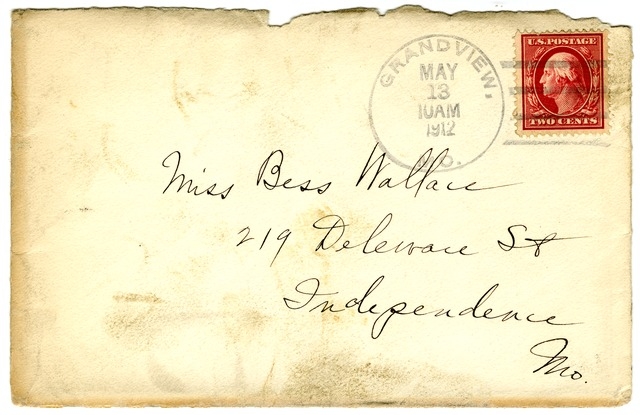 GRANDVIEW,
MAY
13
10AM
1912
MO.
U.S. POSTAGE
TWO CENTS
Miss Bess Wallace
219 Deleware St
Independence
Mo.